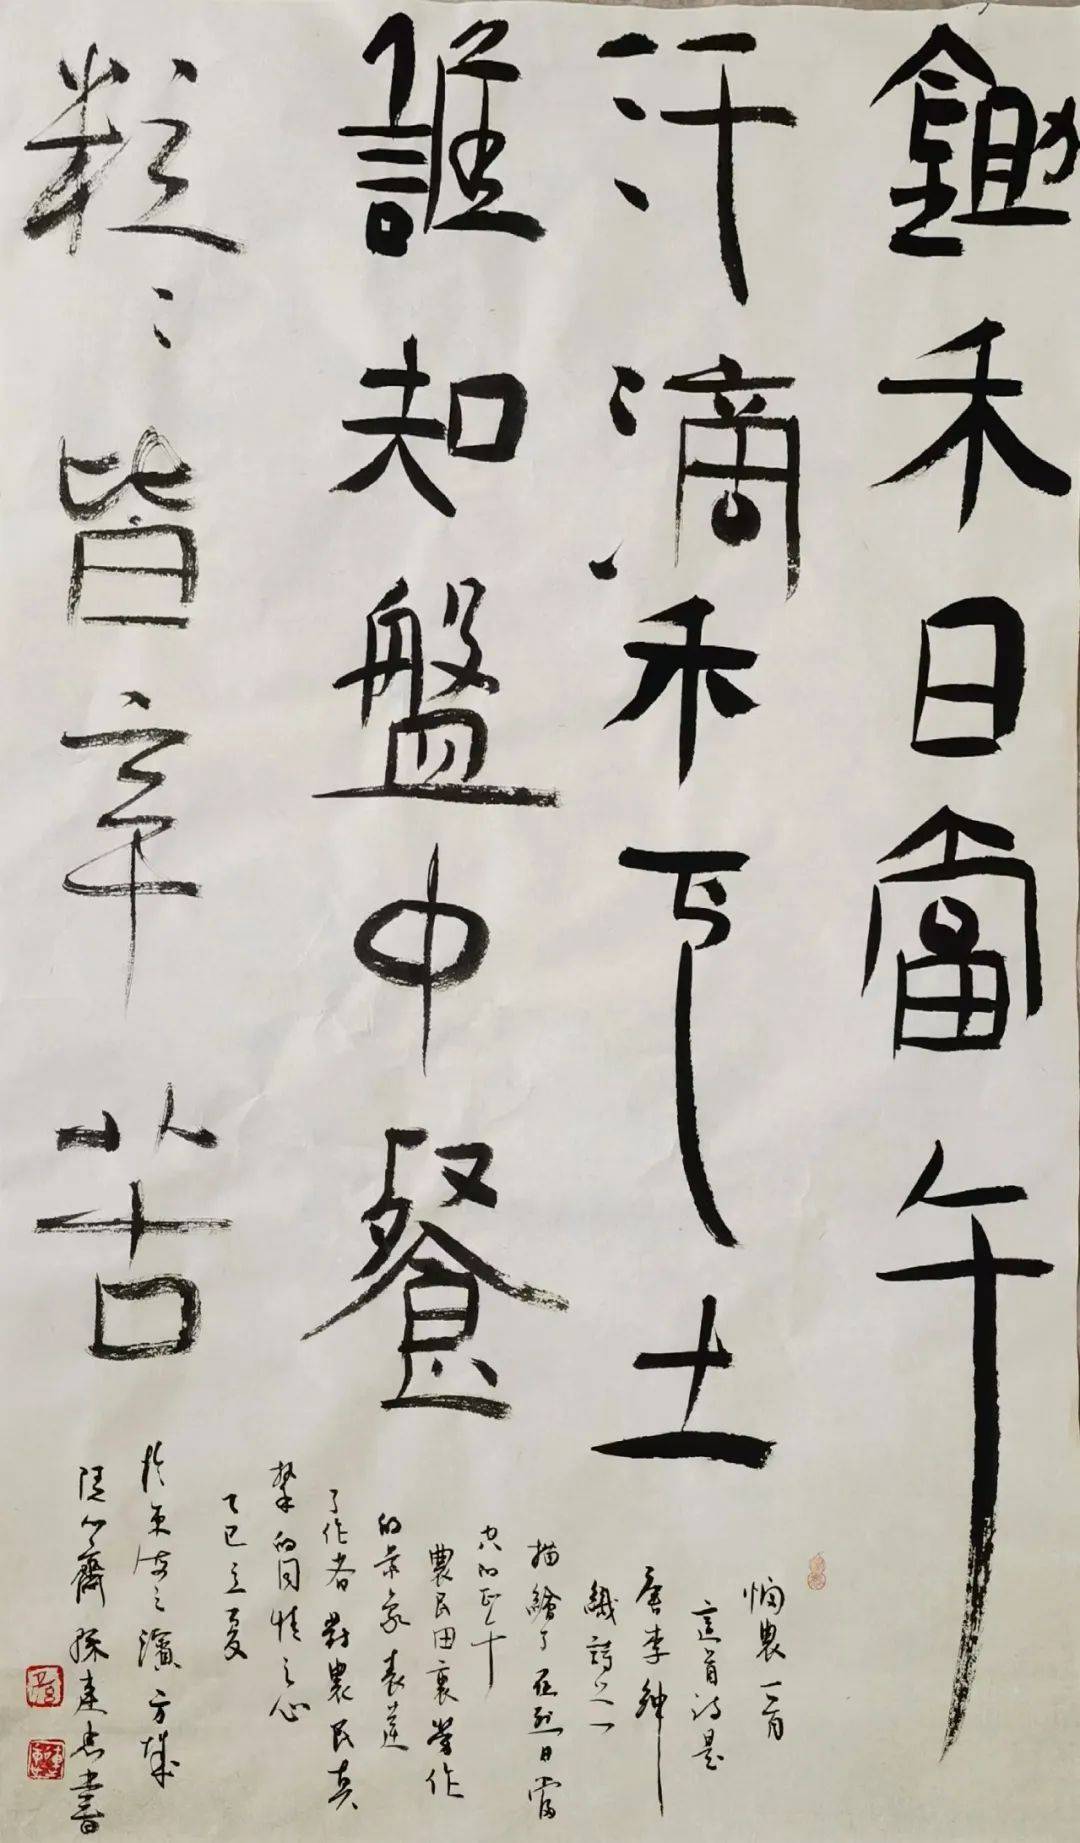 鋤禾日當午
汗滴禾下土
誰知盤中餐
粒〻皆辛苦
憫農一首
這首詩是
唐李紳
組詩之一
描繪了在烈日當
空的正午
農民田裏勞作
的景象表達
了作者對農民真
摯的同情之心
乙巳立夏
於東海之濱方城
孫建忠書